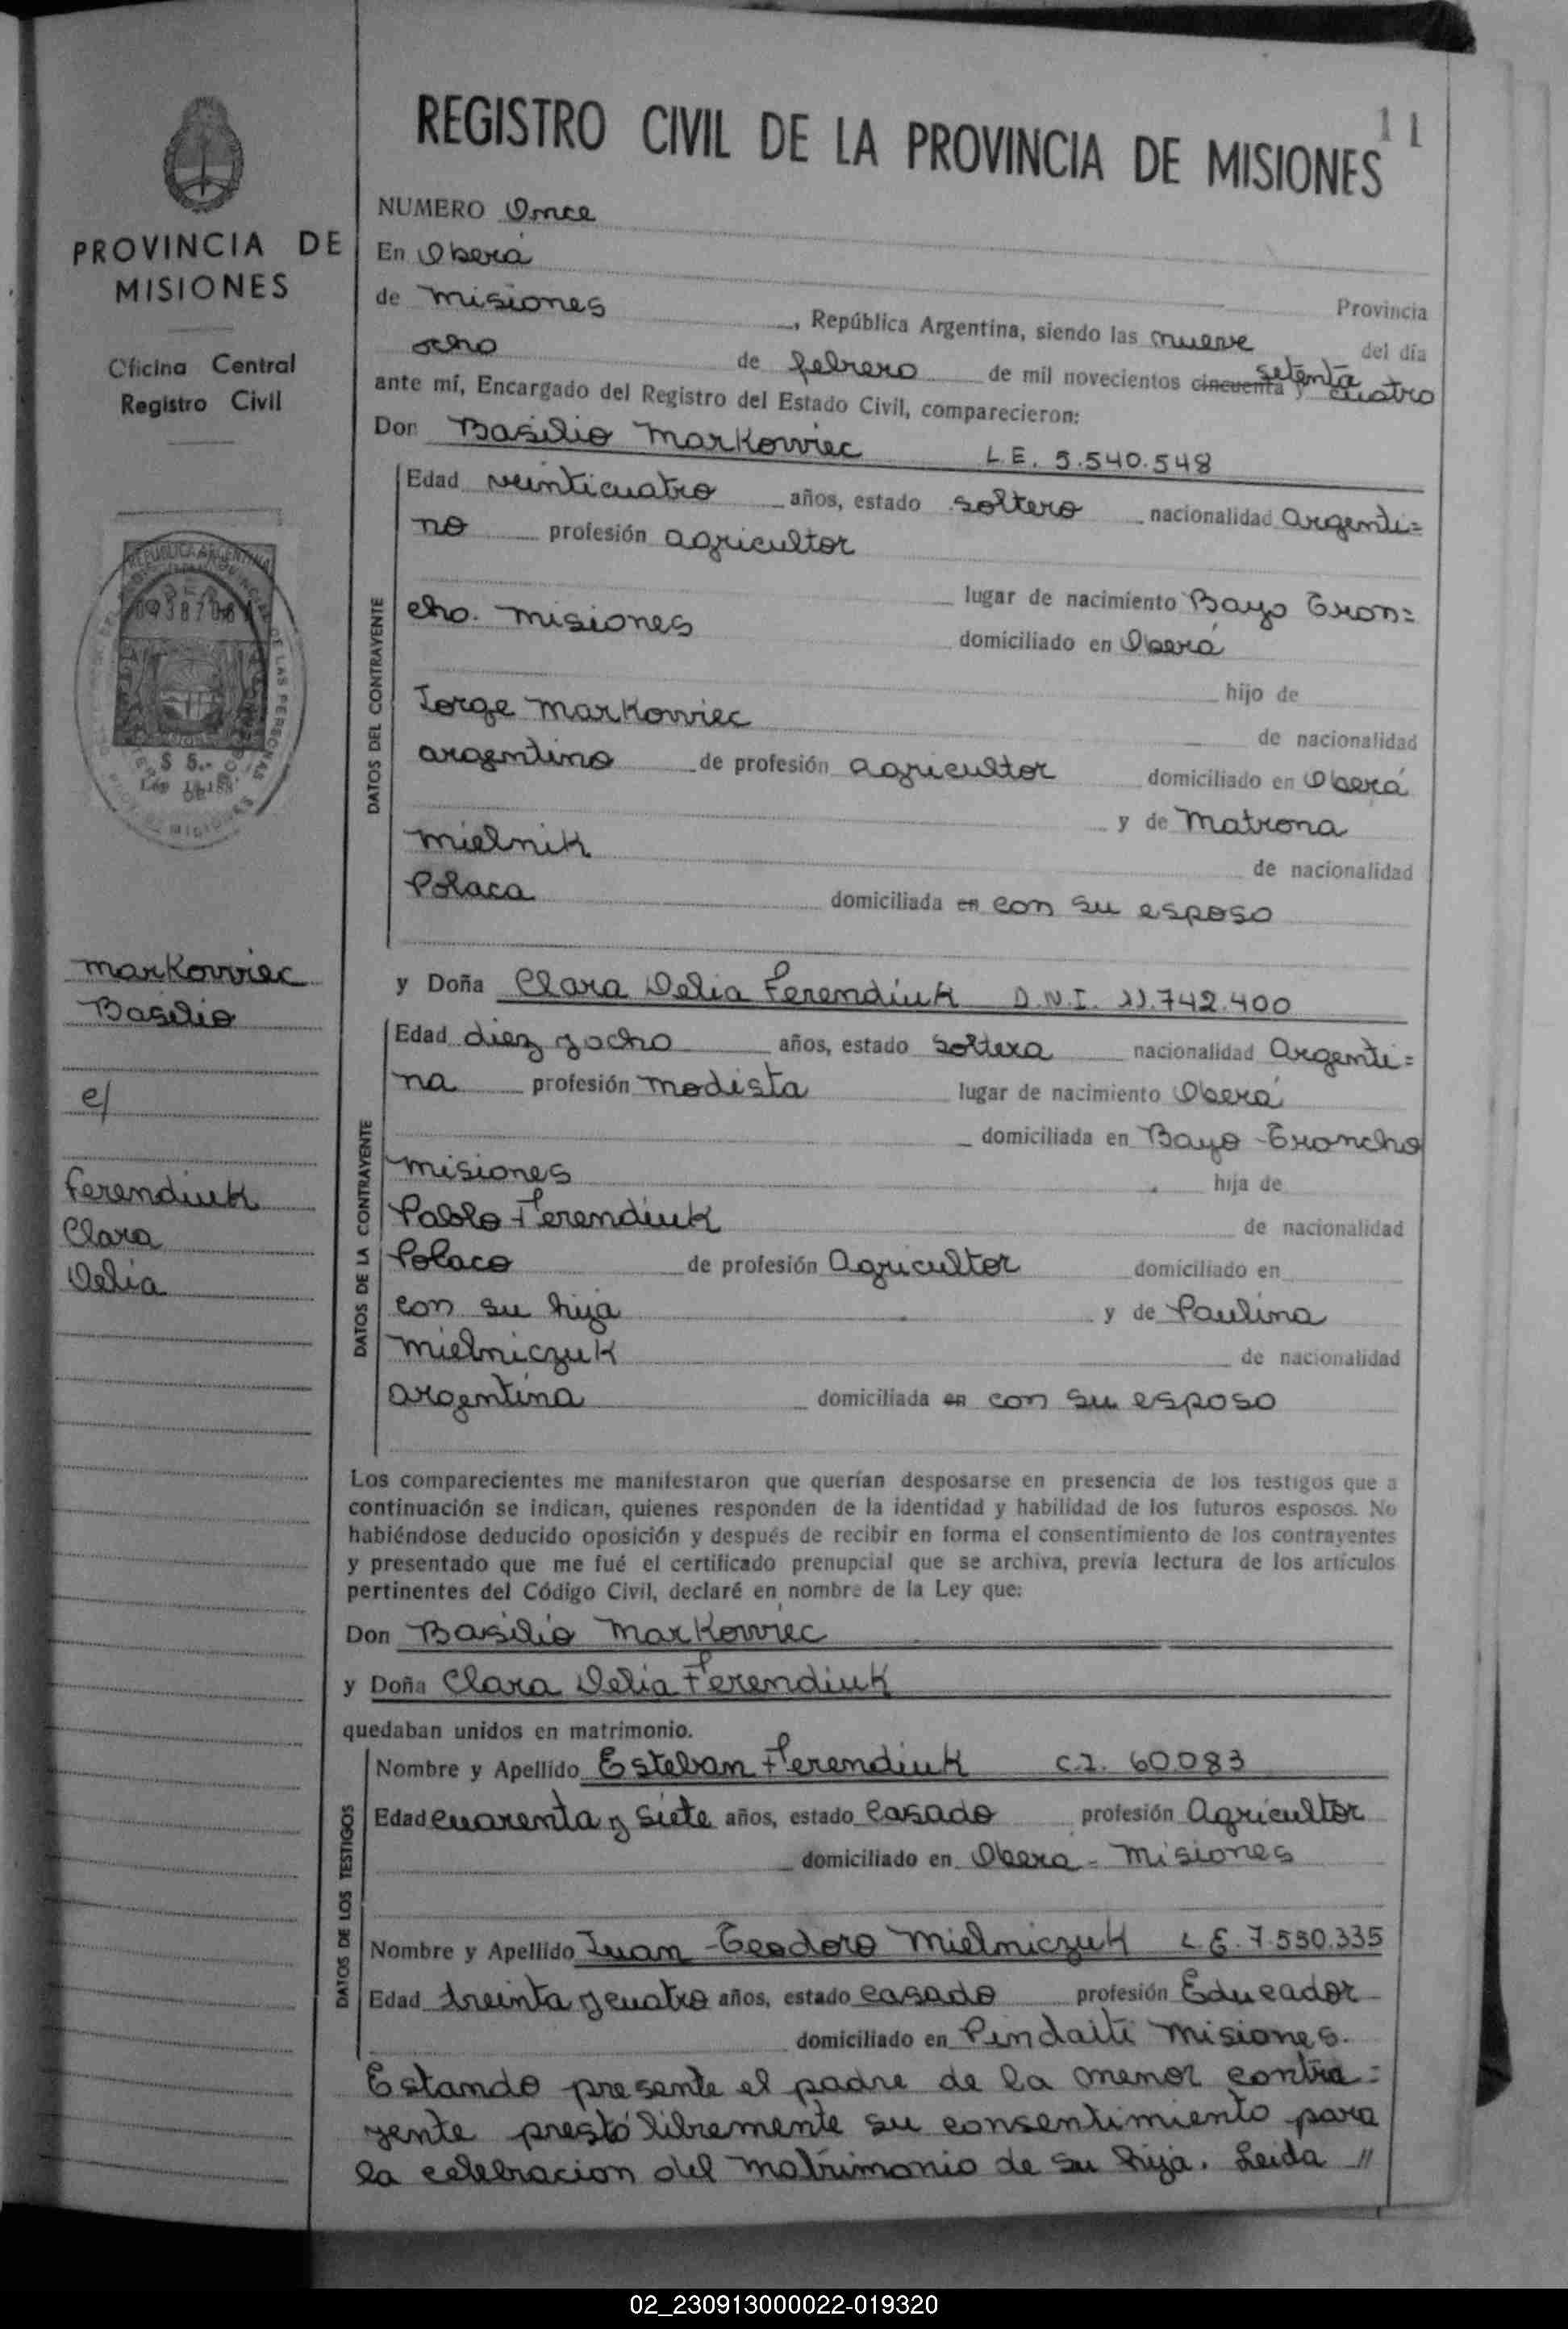 11
REGISTRO CIVIL DE LA PROVINCIA DE MISIONES
PROVINCIA DE
MISIONES
Oficina Central
Registro Civil
REPUBLICA ARGENTINA
$ 5.-
Markowiec
Basilio
e/
Ferendiuk
Clara
Delia
NUMERO Once
En Oberá
Provincia
de Misiones, República Argentina, siendo las nueve del día
ocho de febrero de mil novecientos cincuenta setenta y cuatro
ante mí, Encargado del Registro del Estado Civil, comparecieron:
Don Basilio Markowiec L.E. 5.540.548
DATOS DEL CONTRAYENTE
Edad veinticuatro años, estado soltero nacionalidad Argenti=
no profesión agricultor
lugar de nacimiento Bayo Tron=
cho. Misiones domiciliado en Oberá
hijo de
Jorge Markowiec de nacionalidad
argentino de profesión agricultor domiciliado en Oberá
y de Matrona
Mielnik de nacionalidad
Polaca domiciliada en con su esposo
y Doña Clara Delia Ferendiuk D.N.I. 11.742.400
DATOS DE LA CONTRAYENTE
Edad diez y ocho años, estado soltera nacionalidad Argenti=
na profesión Modista lugar de nacimiento Oberá
domiciliada en Bayo Troncho
Misiones hija de
Pablo Ferendiuk de nacionalidad
Polaco de profesión Agricultor domiciliado en
con su hija y de Paulina
Mielniczuk de nacionalidad
argentina domiciliada en con su esposo
Los comparecientes me manifestaron que querían desposarse en presencia de los testigos que a
continuación se indican, quienes responden de la identidad y habilidad de los futuros esposos. No
habiéndose deducido oposición y después de recibir en forma el consentimiento de los contrayentes
y presentado que me fué el certificado prenupcial que se archiva, previa lectura de los artículos
pertinentes del Código Civil, declaré en nombre de la Ley que:
Don Basilio Markowiec
y Doña Clara Delia Ferendiuk
quedaban unidos en matrimonio.
DATOS DE LOS TESTIGOS
Nombre y Apellido Esteban Ferendiuk C.I. 60083
Edad cuarenta y siete años, estado casado profesión Agricultor
domiciliado en Oberá - Misiones
Nombre y Apellido Juan Teodoro Mielniczuk L.E. 7.550.335
Edad treinta y cuatro años, estado casado profesión Educador
domiciliado en Pindaití Misiones.
Estando presente el padre de la menor contra=
yente prestó libremente su consentimiento para
la celebracion del matrimonio de su hija. Leida //
02_230913000022-019320